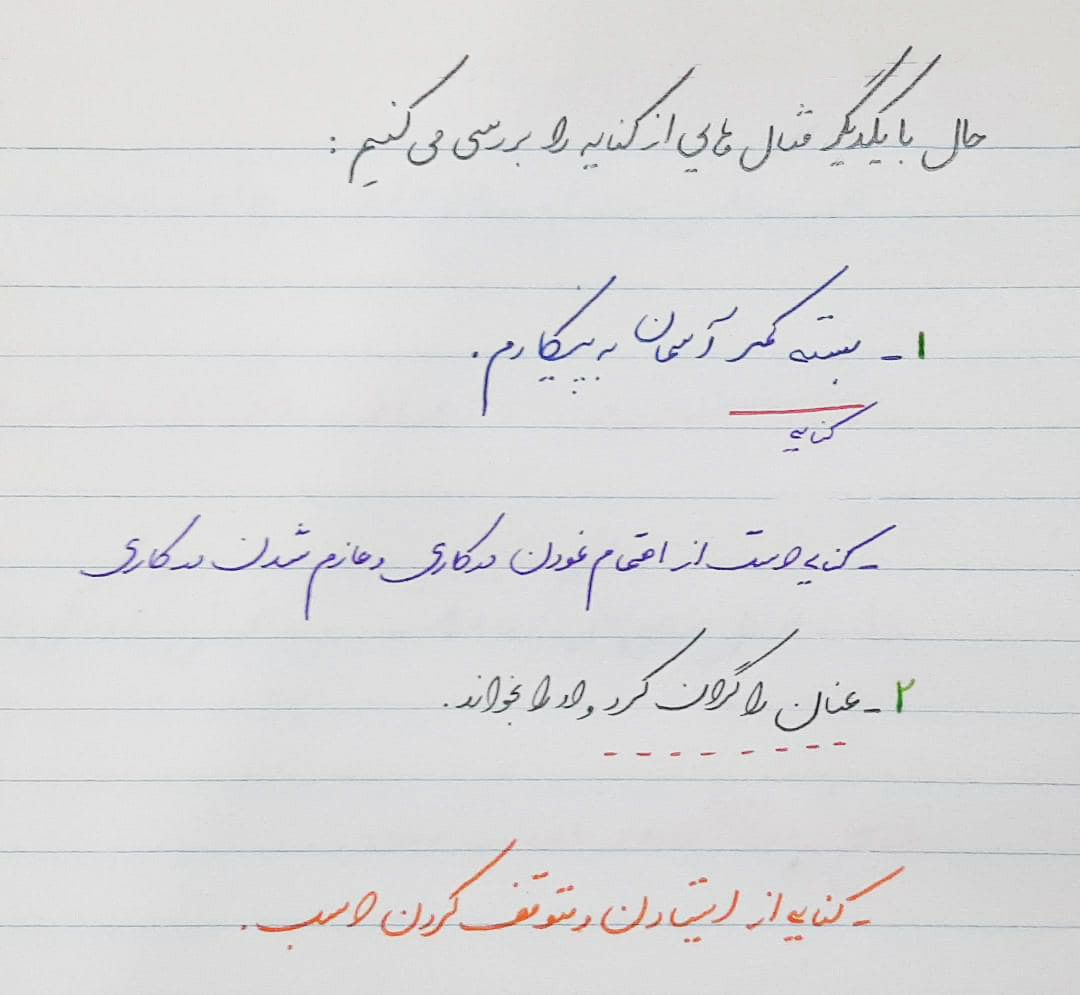 حال با یکدیگر مثال هایی از کنایه را بررسی می کنیم :
۱ - بسته کمر آسمان به پیکارم .
کنایه
- کنایه است از اهتمام نمودن در کاری و عازم شدن در کاری
۲ - عنان را گران کرد و او را بخواند .
- کنایه از ایستادن و متوقف کردن اسب .